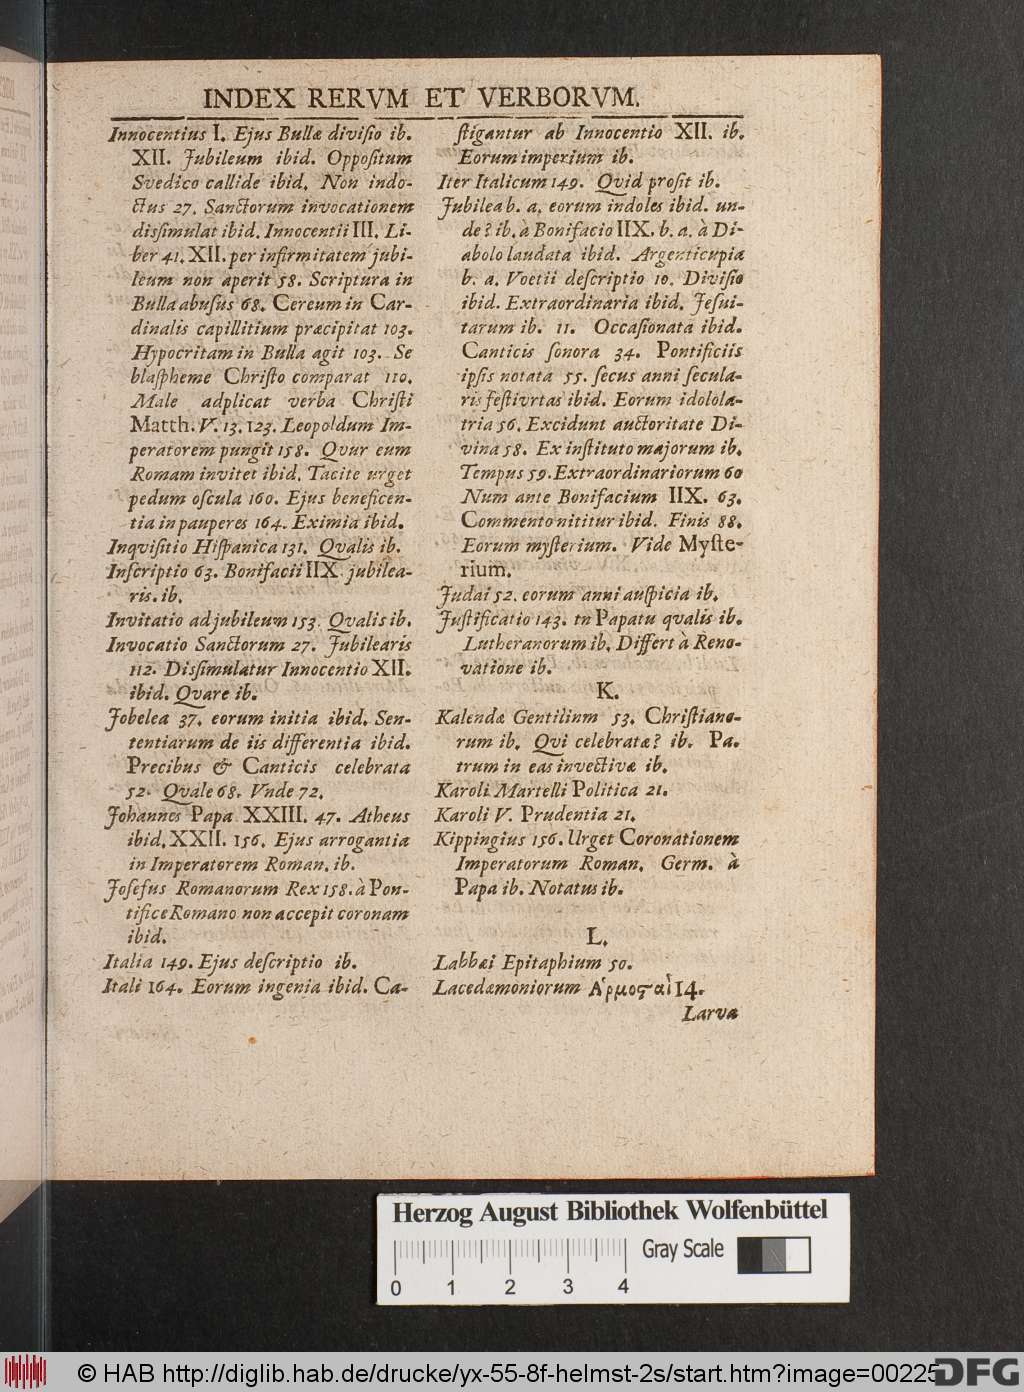 INDEX RERVM ET VERBORVM.
Innocentius I. Ejus Bullæ divisio ib.
XII. Jubileum ibid. Oppositum
Svedico callide ibid. Non indo-
ctus 27. Sanctorum invocationem
dissimulat ibid. Innocentii III. Li-
ber 41. XII. per infirmitatem jubi-
leum non aperit 58. Scriptura in
Bulla abusus 68. Cereum in Car-
dinalis capillitium præcipitat 103.
Hypocritam in Bulla agit 103. Se
blaspheme Christo comparat 110.
Male adplicat verba Christi
Matth. V. 13. 123. Leopoldum Im-
peratorem pungit 158. Qvur eum
Romam invitet ibid. Tacite urget
pedum oscula 160. Ejus beneficen-
tia in pauperes 164. Eximia ibid.
Inqvisitio Hispanica 131. Qvalis ib.
Inscriptio 63. Bonifacii IIX. jubilea-
ris. ib.
Invitatio ad jubileum 153. Qvalis ib.
Invocatio Sanctorum 27. Jubilearis
112. Dissimulatur Innocentio XII.
ibid. Qvare ib.
Jobelea 37. eorum initia ibid. Sen-
tentiarum de iis differentia ibid.
Precibus & Canticis celebrata
52. Qvale 68. Vnde 72.
Johannes Papa XXIII. 47. Atheus
ibid. XXII. 156. Ejus arrogantia
in Imperatorem Roman. ib.
Josefus Romanorum Rex 158. à Pon-
tifice Romano non accepit coronam
ibid.
Italia 149. Ejus descriptio ib.
Itali 164. Eorum ingenia ibid. Ca-
stigantur ab Innocentio XII. ib.
Eorum imperium ib.
Iter Italicum 149. Qvid prosit ib.
Jubilea b. a. eorum indoles ibid. un-
de? ib. a Bonifacio IIX. b. a. à Di-
abolo laudata ibid. Argenticupia
b. a. Voetii descriptio 10. Divisio
ibid. Extraordinaria ibid. Jesui-
tarum ib. 11. Occasionata ibid.
Canticis sonora 34. Pontificiis
ipsis notata 55. secus anni secula-
ris festivrtas ibid. Eorum idolola-
tria 56. Excidunt auctoritate Di-
vina 58. Ex instituto majorum ib.
Tempus 59. Extraordinariorum 60
Num ante Bonifacium IIX. 63.
Commento nititur ibid. Finis 88.
Eorum mysterium. Vide Myste-
rium.
Judæi 52. eorum anni auspicia ib.
Justificatio 143. tn Papatu qvalis ib.
Lutheranorum ib. Differt à Reno-
vatione ib.
K.
Kalendæ Gentilium 53. Christiano-
rum ib. Qvi celebratæ? ib. Pa-
trum in eas invectivæ ib.
Karoli Martelli Politica 21.
Karoli V. Prudentia 21.
Kippingius 156. Urget Coronationem
Imperatorum Roman. Germ. à
Papa ib. Notatus ib.
L.
Labbæi Epitaphium 50.
Lacedæmoniorum Ἁρμοϛαὶ 14.
Larva
Herzog August Bibliothek Wolfenbüttel
Gray Scale
0 1 2 3 4
© HAB http://diglib.hab.de/drucke/yx-55-8f-helmst-2s/start.htm?image=00225
DFG